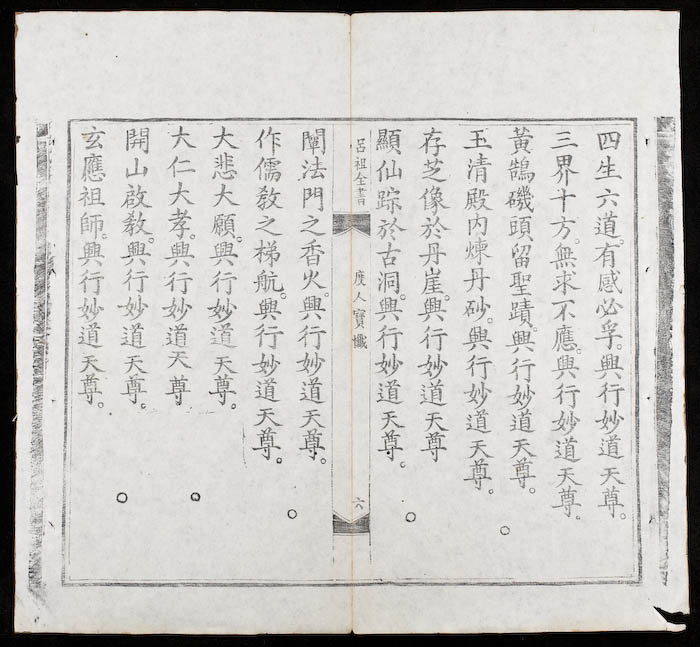 四生六道。有感必孚。興行妙道天尊。
三界十方。無求不應。興行妙道天尊。
黃鵠磯頭留聖蹟。興行妙道天尊。
玉清殿內煉丹砂。興行妙道天尊。
存芝像於丹崖。興行妙道天尊
顯仙踪於古洞。興行妙道天尊。
呂祖全書
度人寶懺
六
闡法門之香火。興行妙道天尊。
作儒教之梯航。興行妙道天尊。
大悲大願。興行妙道天尊。
大仁大孝。興行妙道天尊
開山啟教。興行妙道天尊。
玄應祖師。興行妙道天尊。